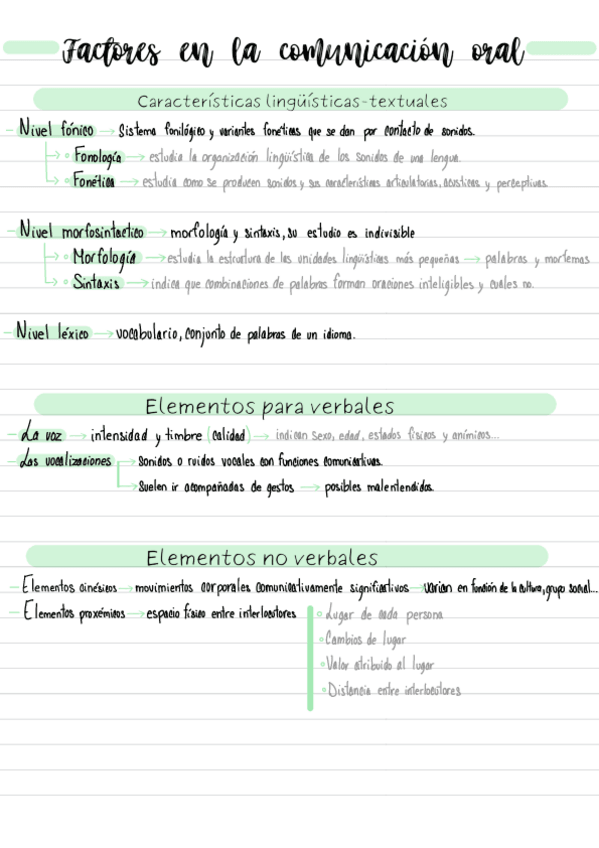 Factores en la comunicación oral
Características lingüísticas-textuales
- Nivel fónico → Sistema fonilógico y variantes fonéticas que se dan por contacto de sonidos.
→ Fonología → estudia la organización lingüística de los sonidos de una lengua.
→ Fonética → estudia como se producen sonidos y sus características articulatorias, acústicas y perceptivas.
- Nivel morfosintactico → morfología y sintaxis, su estudio es indivisible
→ Morfología → estudia la estructura de las unidades lingüísticas más pequeñas → palabras y morfemas
→ Sintaxis → indica que combinaciones de palabras forman oraciones inteligibles y cuales no.
- Nivel léxico → vocabulario, conjunto de palabras de un idioma.
Elementos para verbales
- La voz → intensidad y timbre (calidad) → indican sexo, edad, estados físicos y anímicos...
- Las vocalizaciones → Sonidos o ruidos vocales con funciones comunicativas.
→ Suelen ir acompañadas de gestos → posibles malentendidos.
Elementos no verbales
- Elementos cinésicos → movimientos corporales comunicativamente significativos → varian en función de la cultura, grupo social...
- Elementos proxémicos → espacio físico entre interlocutores
• Lugar de cada persona
• Cambios de lugar
• Valor atribuido al lugar
• Distancia entre interlocutores